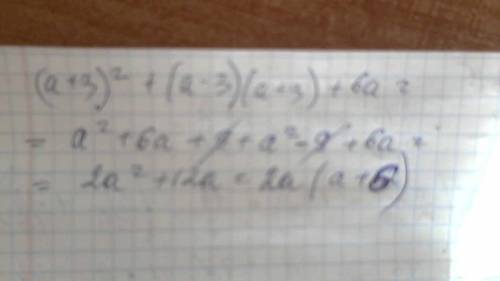 (a+3)² + (a-3)(a+3) + 6a =
= a² + 6a + 9 + a² - 9 + 6a =
= 2a² + 12a = 2a(a+6)